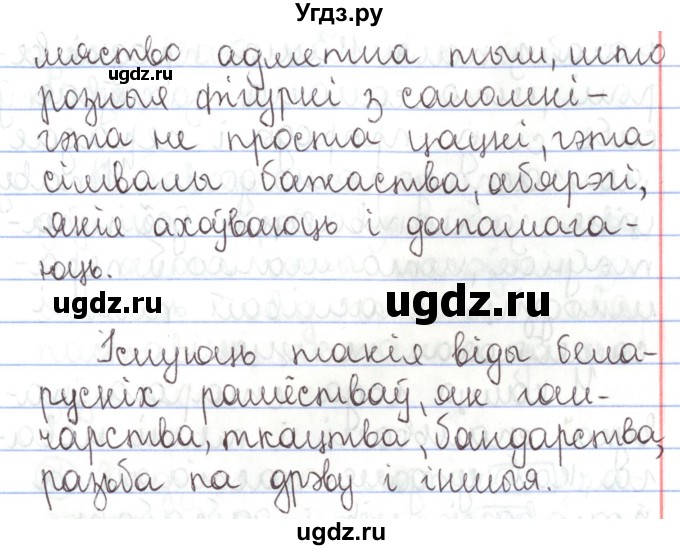 Угдз.ру
мяство адметна тым, што
ugdz.ru
ugdz.ru
розныя фігуркі з саломкі-
гэта не проста цацкі, гэта
сімвалы бажаства, абярэгі,
якія ахоўваюць і дапамага-
юць.
ugdz.ru
ugdz.ru
Існуюць такія віды бела-
рускіх рамёстваў, як ган-
чарства, ткацтва, бандарства,
ugdz.ru
ugdz.ru
разьба па дрэву і іншыя.
ugdz.ru